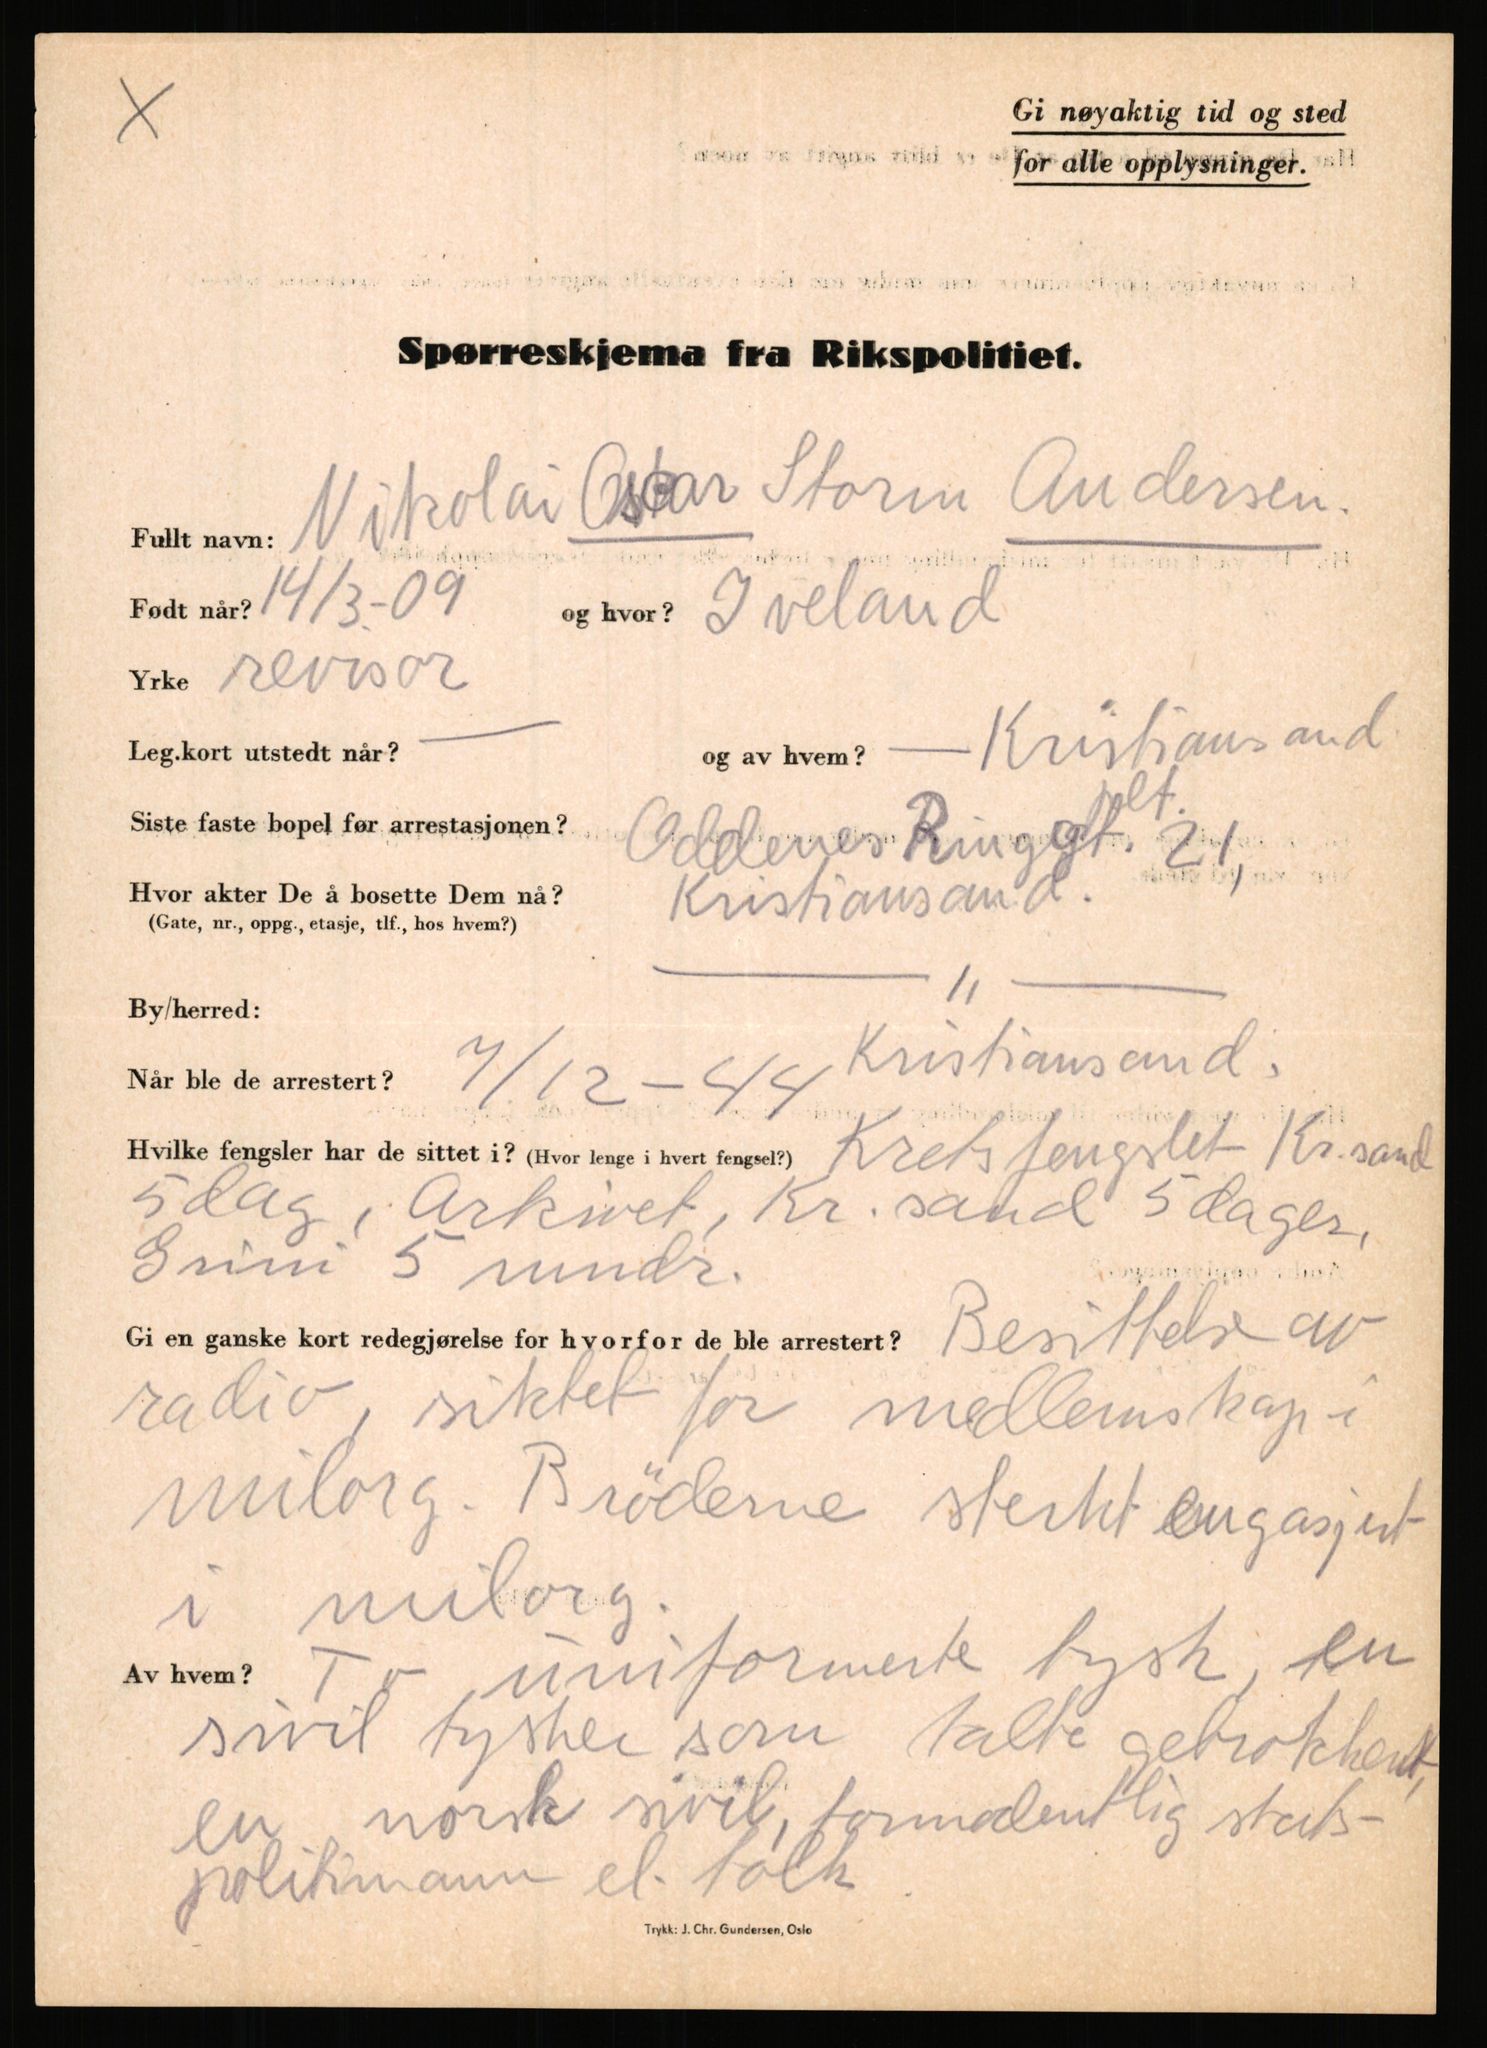 Gi nøyaktig tid og sted
for alle opplysninger.
Spørreskjema fra Rikspolitiet.
Fullt navn: Nikolai Oskar Storm Andersen.
Født når? 14/3-09 og hvor? Iveland
Yrke revisor
Leg.kort utstedt når? — og av hvem? — Kristiansand
plt.
Siste faste bopel før arrestasjonen? Oddernes Ringgt. 21,
Hvor akter De å bosette Dem nå? Kristiansand.
(Gate, nr., oppg., etasje, tlf., hos hvem?)
— " —
By/herred:
Når ble de arrestert? 7/12-44 Kristiansand.
Hvilke fengsler har de sittet i? (Hvor lenge i hvert fengsel?) Kretsfengslet Kr.sand
5 dag, Arkivet, Kr.sand 5 dager,
Grini 5 mndr.
Gi en ganske kort redegjørelse for hvorfor de ble arrestert? Besittelse av
radio, siktet for medlemskap i
milorg. Bröderne sterkt engasjert
i milorg.
Av hvem? To uniformerte tysk, en
sivil tysker som talte gebrokkent,
en norsk sivil, formodentlig stats-
politimann el. tolk.
Trykk: J. Chr. Gundersen, Oslo